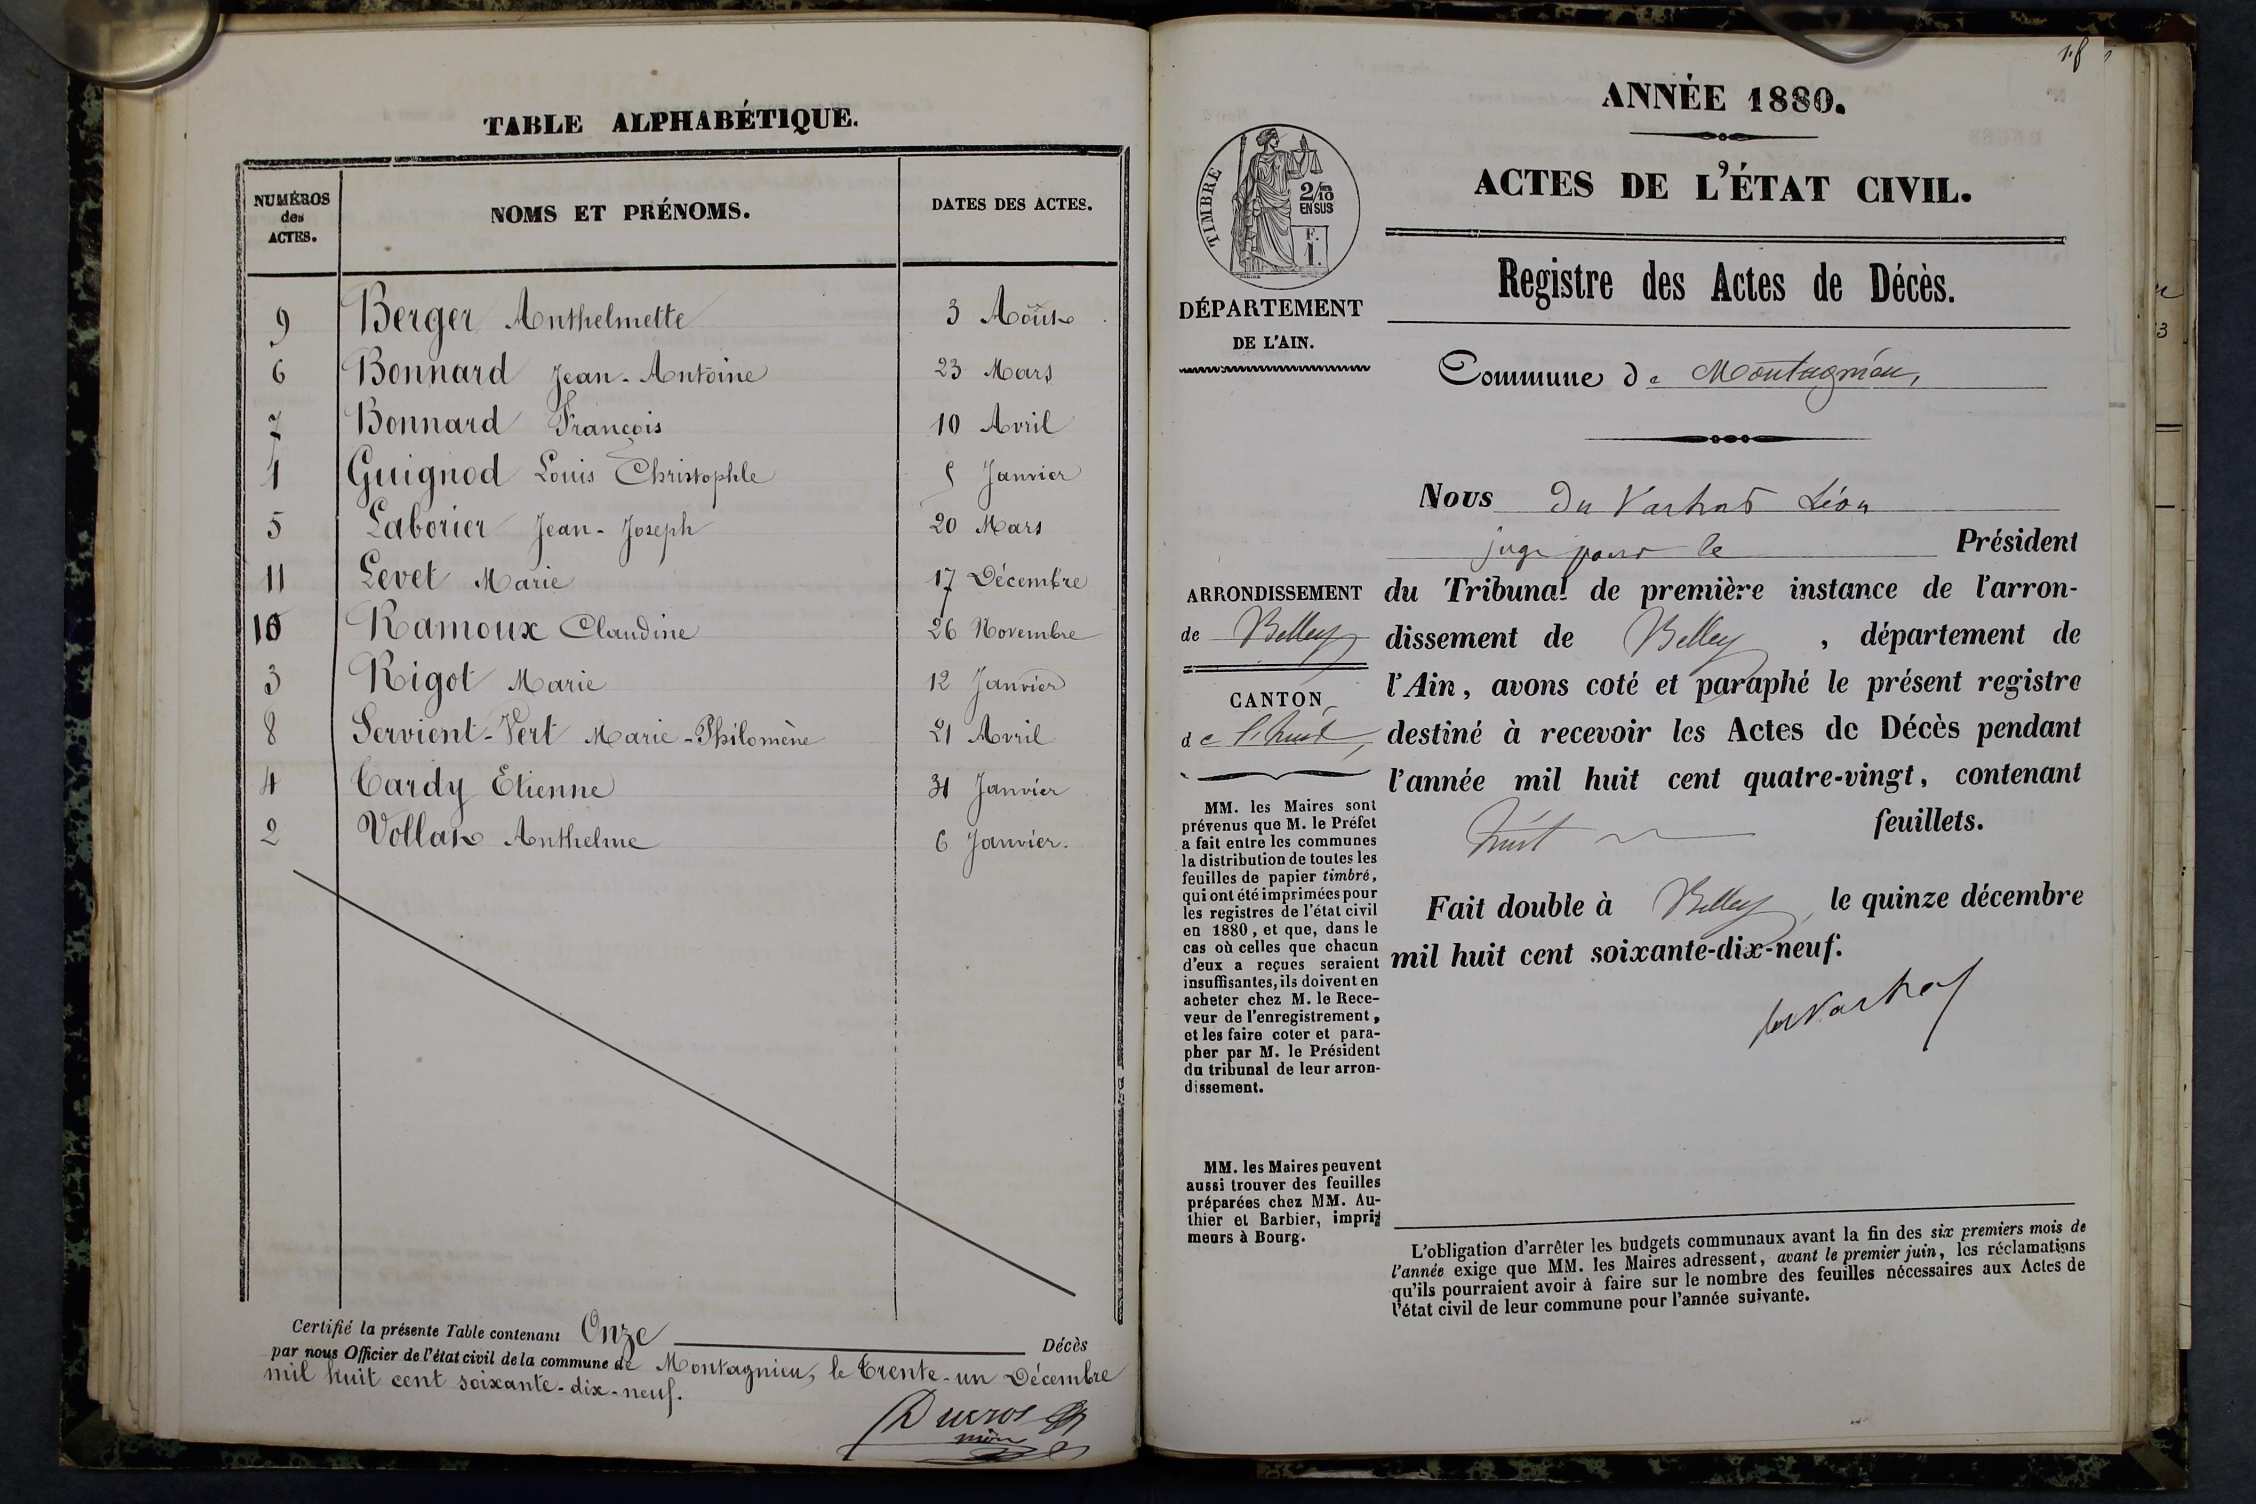 TABLE ALPHABÉTIQUE.
NUMÉROS des ACTES.
NOMS ET PRÉNOMS.
DATES DES ACTES.
9 Berger Anthelmette 3 Août
6 Bonnard Jean-Antoine 23 Mars
7 Bonnard François 10 Avril
1 Guignod Louis Christophle 5 Janvier
5 Laborier Jean-Joseph 20 Mars
11 Levet Marie 17 Décembre
10 Ramoux Claudine 26 Novembre
3 Rigot Marie 12 Janvier
8 Servient-Vert Marie-Philomène 21 Avril
4 Tardy Etienne 31 Janvier
2 Vollat Anthelme 6 Janvier.
Certifié la présente Table contenant Onze Décès
par nous Officier de l'état civil de la commune de Montagnieu, le trente-un Décembre
mil huit cent soixante-dix-neuf.
Ducros
ANNÉE 1880.
ACTES DE L'ÉTAT CIVIL.
Registre des Actes de Décès.
TIMBRE
2/10
EN SUS
F.
1.
DÉPARTEMENT
DE L'AIN.
ARRONDISSEMENT
de Belley
CANTON
de Lhuis
MM. les Maires sont
prévenus que M. le Préfet
a fait entre les communes
la distribution de toutes les
feuilles de papier timbré,
qui ont été imprimées pour
les registres de l'état civil
en 1880, et que, dans le
cas où celles que chacun
d'eux a reçues seraient
insuffisantes, ils doivent en
acheter chez M. le Rece-
veur de l'enregistrement,
et les faire coter et para-
pher par M. le Président
du tribunal de leur arron-
dissement.
MM. les Maires peuvent
aussi trouver des feuilles
préparées chez MM. Au-
thier et Barbier, impri-
meurs à Bourg.
Commune de Montagnieu,
Nous Léon
juge pour le Président
du Tribunal de première instance de l'arron-
dissement de Belley, département de
l'Ain, avons coté et paraphé le présent registre
destiné à recevoir les Actes de Décès pendant
l'année mil huit cent quatre-vingt, contenant
huit feuillets.
Fait double à Belley, le quinze décembre
mil huit cent soixante-dix-neuf.
L'obligation d'arrêter les budgets communaux avant la fin des six premiers mois de
l'année exige que MM. les Maires adressent, avant le premier juin, les réclamations
qu'ils pourraient avoir à faire sur le nombre des feuilles nécessaires aux Actes de
l'état civil de leur commune pour l'année suivante.